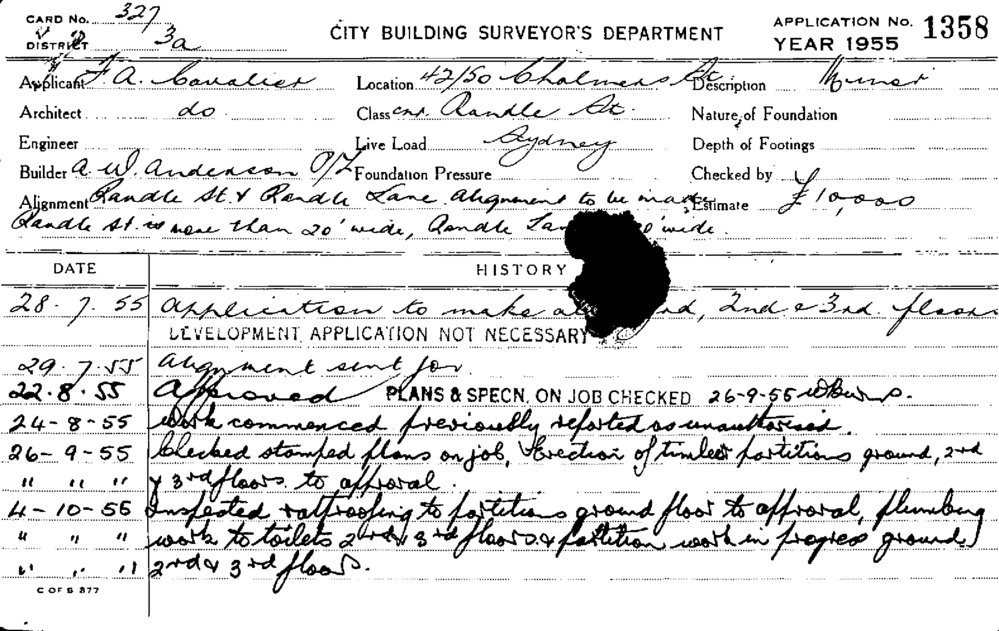 CARD No. 327
DISTRICT 3a
CITY BUILDING SURVEYOR'S DEPARTMENT
APPLICATION No. 1358
YEAR 1955
Applicant F. A. Cavalier Location 42/50 Chalmers St. Description Minor
Architect do Class cnr. Randle St. Nature of Foundation
Engineer Live Load Sydney Depth of Footings
Builder A. W. Anderson P/L Foundation Pressure Checked by
Alignment Randle St. & Randle Lane Alignment to be made Estimate £10,000
Randle St. is more than 20' wide, Randle 0' wide.
DATE HISTORY
28. 7. 55 Application to make 2nd & 3rd. floors
DEVELOPMENT APPLICATION NOT NECESSARY
29. 7. 55 Alignment sent for.
22. 8. 55 Approved PLANS & SPECN. ON JOB CHECKED 26-9-55
24-8-55 Work commenced previously reported as unauthorised.
26-9-55 Checked stamped plans on job, Erection of timber partitions ground, 2nd
" " " & 3rd floors to approval.
4-10-55 Inspected ratproofing to partitions ground floor to approval, plumbing
" " " work to toilets 2nd & 3rd floors & partition work in progress ground,
" " " 2nd & 3rd floors.
C OF S 377